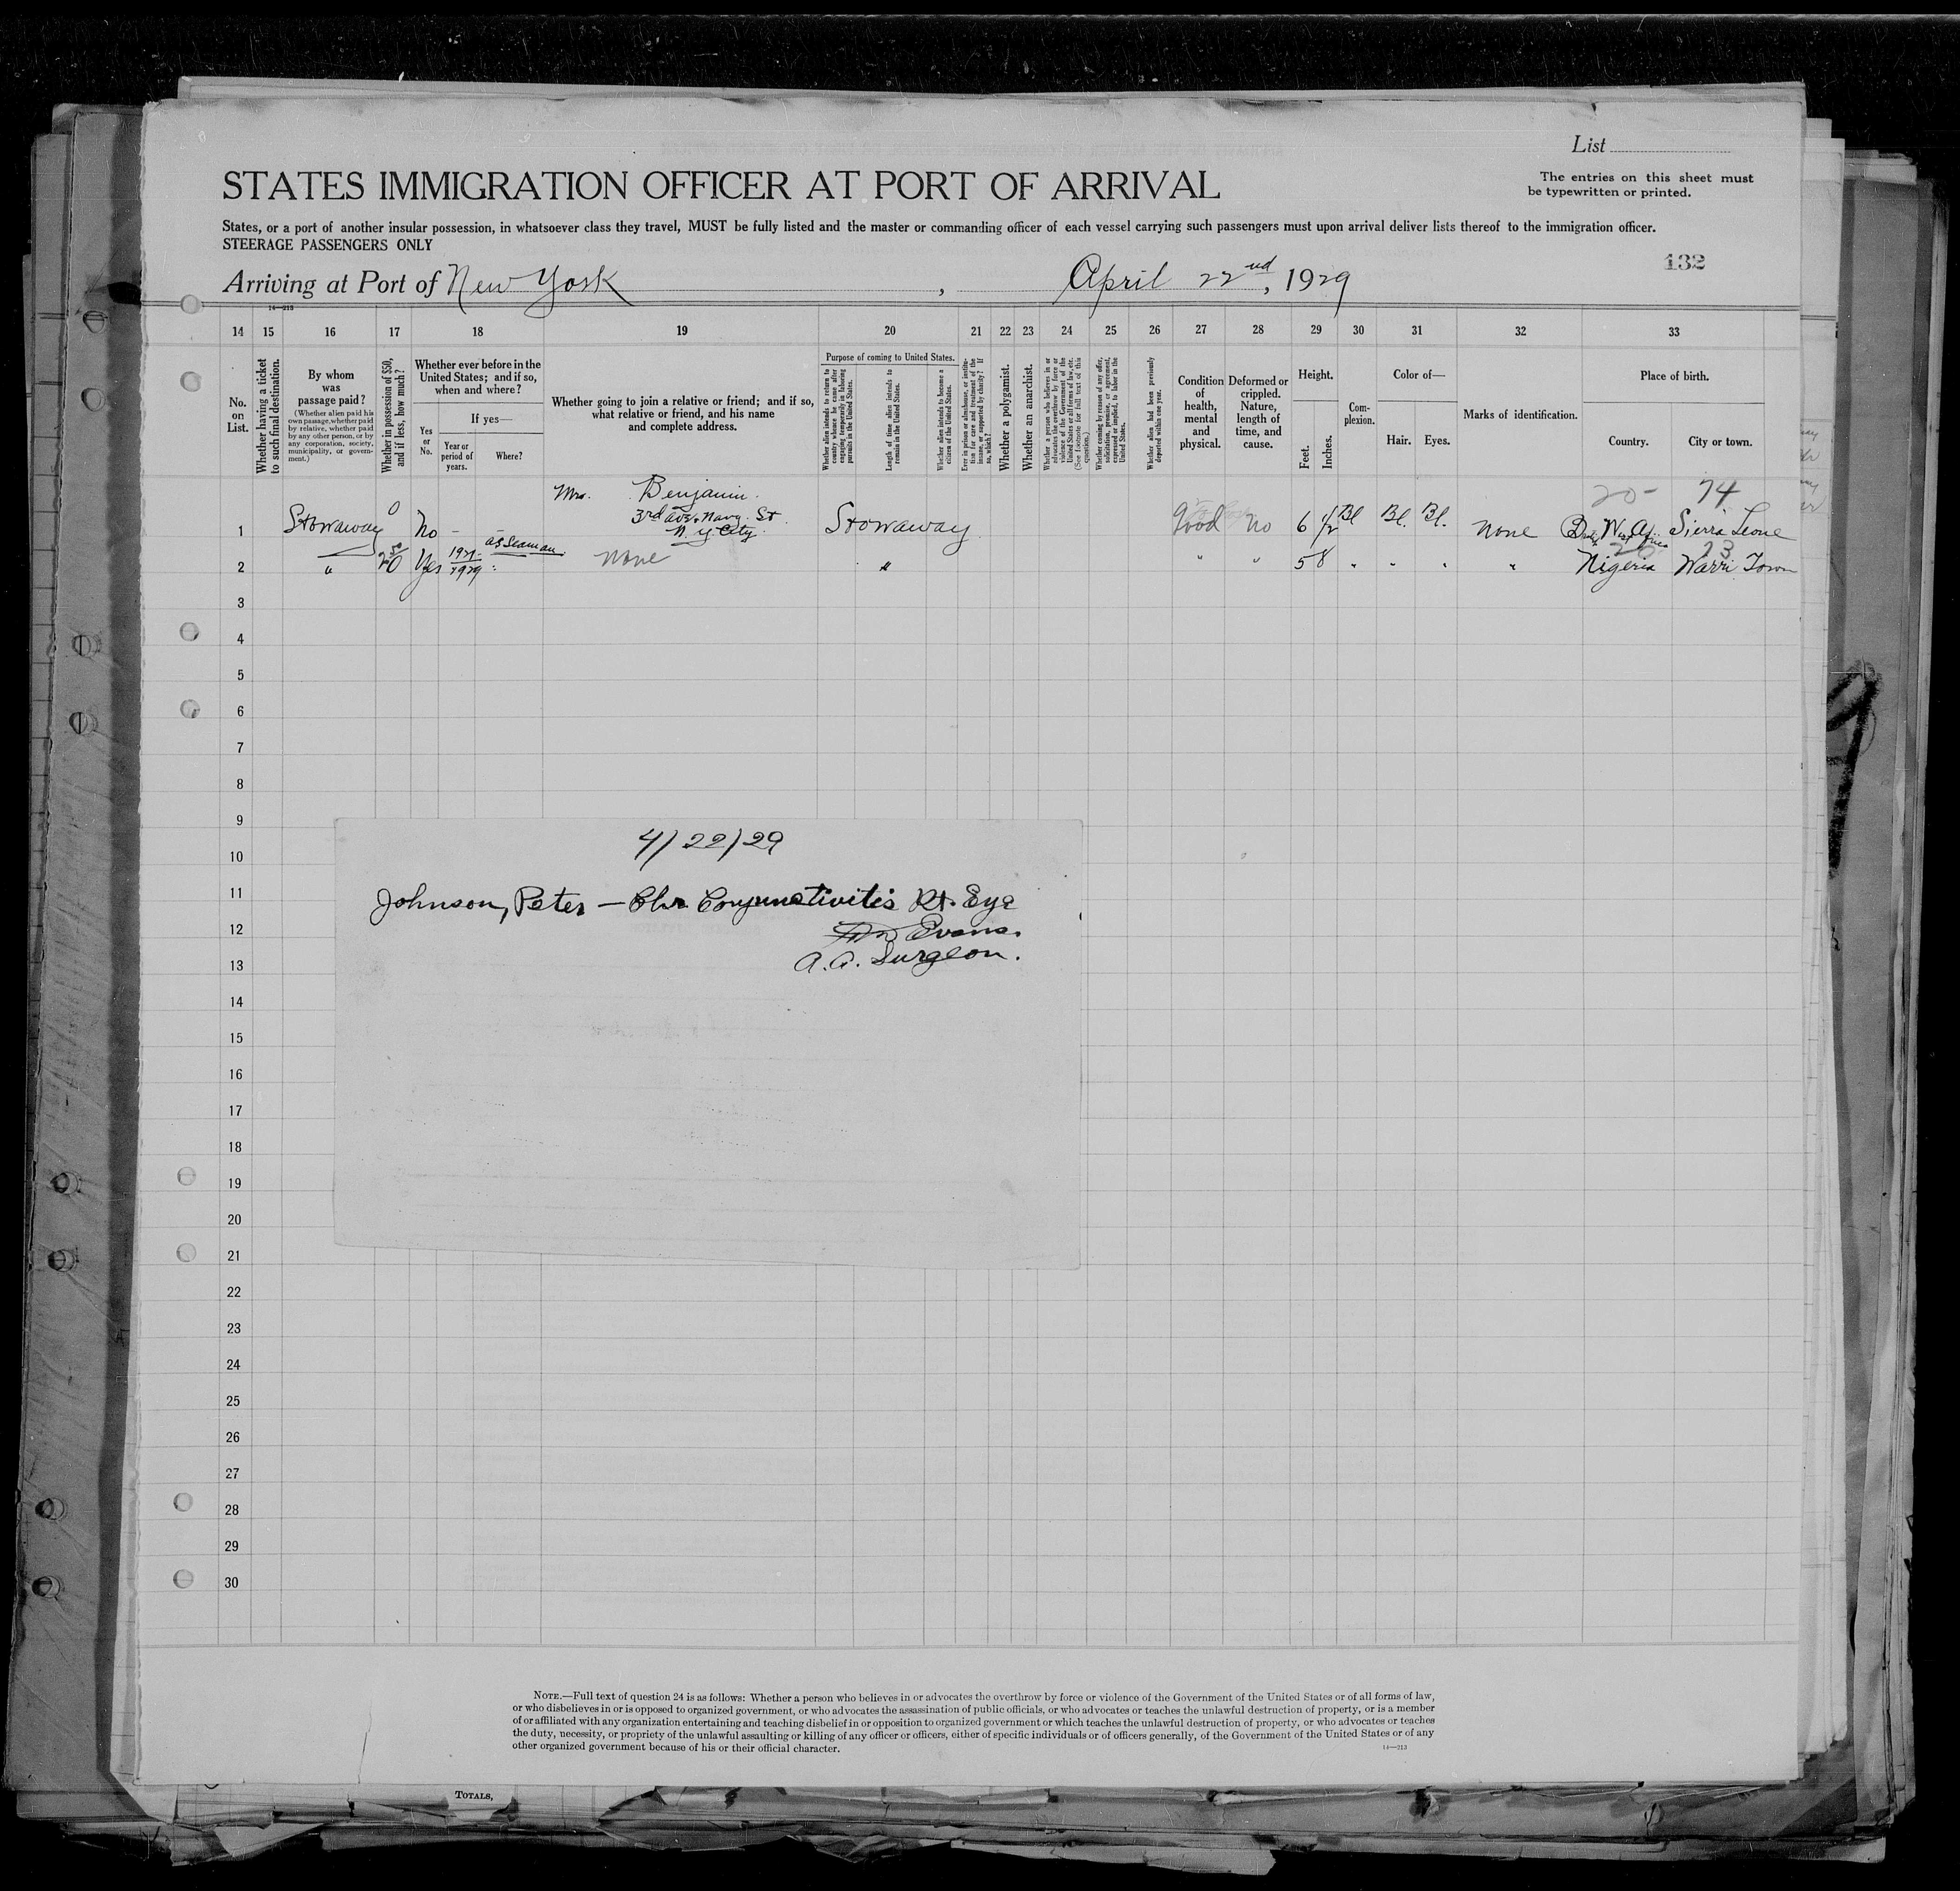 List
STATES IMMIGRATION OFFICER AT PORT OF ARRIVAL
The entries on this sheet must
be typewritten or printed.
States, or a port of another insular possession, in whatsoever class they travel, MUST be fully listed and the master or commanding officer of each vessel carrying such passengers must upon arrival deliver lists thereof to the immigration officer.
STEERAGE PASSENGERS ONLY
132
Arriving at Port of New York, April 22nd, 1929
14—213
14 15 16 17 18 19 20 21 22 23 24 25 26 27 28 29 30 31 32 33
No. on List.
Whether having a ticket to such final destination.
By whom was passage paid?
(Whether alien paid his own passage, whether paid by relative, whether paid by any other person, or by any corporation, society, municipality, or government.)
Whether in possession of $50, and if less, how much?
Whether ever before in the United States; and if so, when and where?
Yes or No.
If yes—
Year or period of years.
Where?
Whether going to join a relative or friend; and if so, what relative or friend, and his name and complete address.
Purpose of coming to United States.
Whether alien intends to return to country whence he came after engaging temporarily in laboring pursuits in the United States.
Length of time alien intends to remain in the United States.
Whether alien intends to become a citizen of the United States.
Ever in prison or almshouse, or institution for care and treatment of the insane, or supported by charity? If so, which?
Whether a polygamist.
Whether an anarchist.
Whether a person who believes in or advocates the overthrow by force or violence of the Government of the United States or all forms of law, etc. (See footnote for full text of this question.)
Whether coming by reason of any offer, solicitation, promise, or agreement, expressed or implied, to labor in the United States.
Whether alien had been previously deported within one year.
Condition of health, mental and physical.
Deformed or crippled. Nature, length of time, and cause.
Height.
Feet. Inches.
Complexion.
Color of—
Hair. Eyes.
Marks of identification.
Place of birth.
Country. City or town.
Mrs. Benjamin
3rd Ave. Navy. St.
N.Y. City.
20- 74
1 Stowaway 0 No - - Stowaway Good No 6 1/2 Bl Bl. Bl. None Br. West Africa Sierra Leone
as Seaman.
20 73
2 " Yes 1921- 1929 None " " " 5 8 " " " " Nigeria Warri Town
3
4
5
6
7
8
9
10
11
12
13
14
15
16
17
18
19
20
21
22
23
24
25
26
27
28
29
30
4/22/29
Johnson, Peter — Chr Conjunctivitis Rt. Eye
Evans.
A.A. Surgeon.
NOTE.—Full text of question 24 is as follows: Whether a person who believes in or advocates the overthrow by force or violence of the Government of the United States or of all forms of law,
or who disbelieves in or is opposed to organized government, or who advocates the assassination of public officials, or who advocates or teaches the unlawful destruction of property, or is a member
of or affiliated with any organization entertaining and teaching disbelief in or opposition to organized government or which teaches the unlawful destruction of property, or who advocates or teaches
the duty, necessity, or propriety of the unlawful assaulting or killing of any officer or officers, either of specific individuals or of officers generally, of the Government of the United States or of any
other organized government because of his or their official character.
14—213
TOTALS,